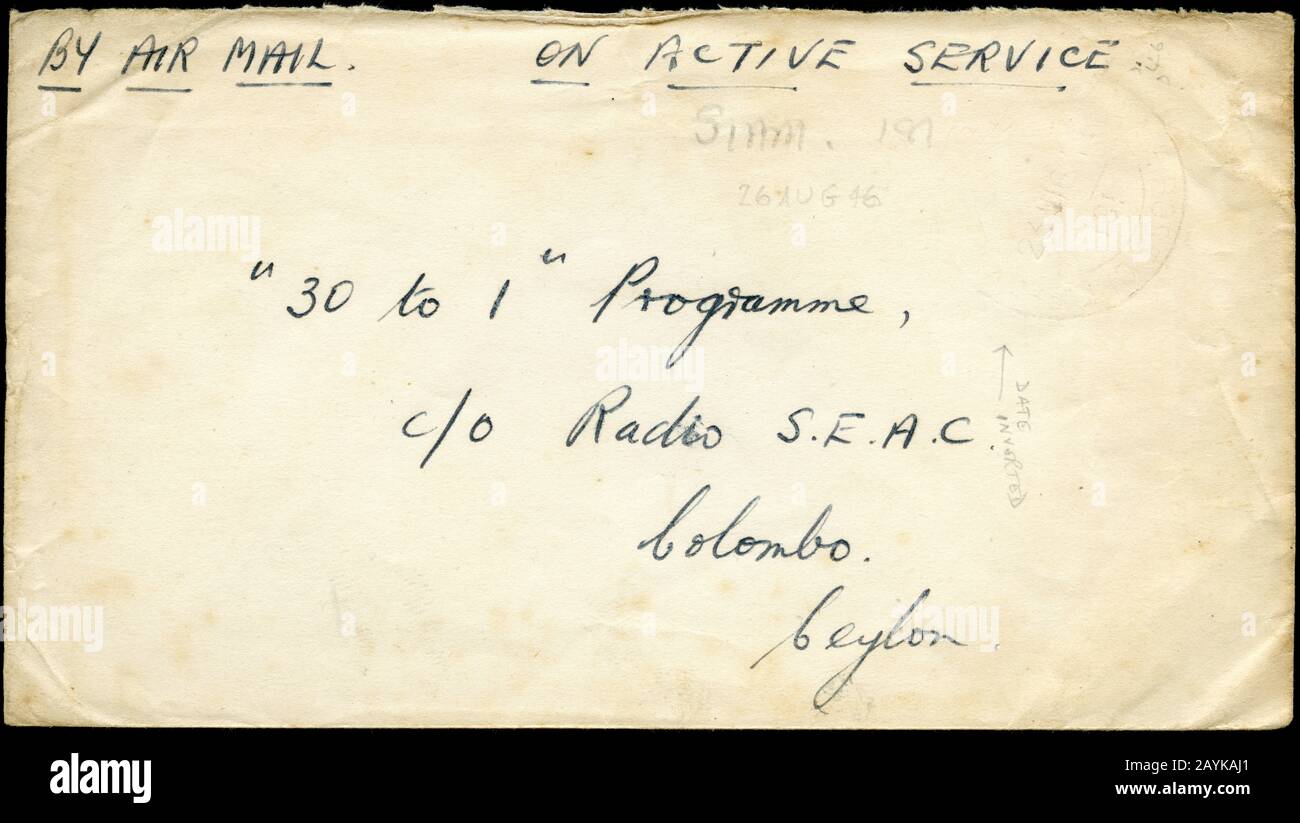 BY AIR MAIL. ON ACTIVE SERVICE
SIAM. 181
26 AUG 46
"30 to 1" Programme,
c/o Radio S.E.A.C.
Colombo.
Ceylon.
DATE
INVERTED
alamy
Image ID: 2AYKAJ1
www.alamy.com